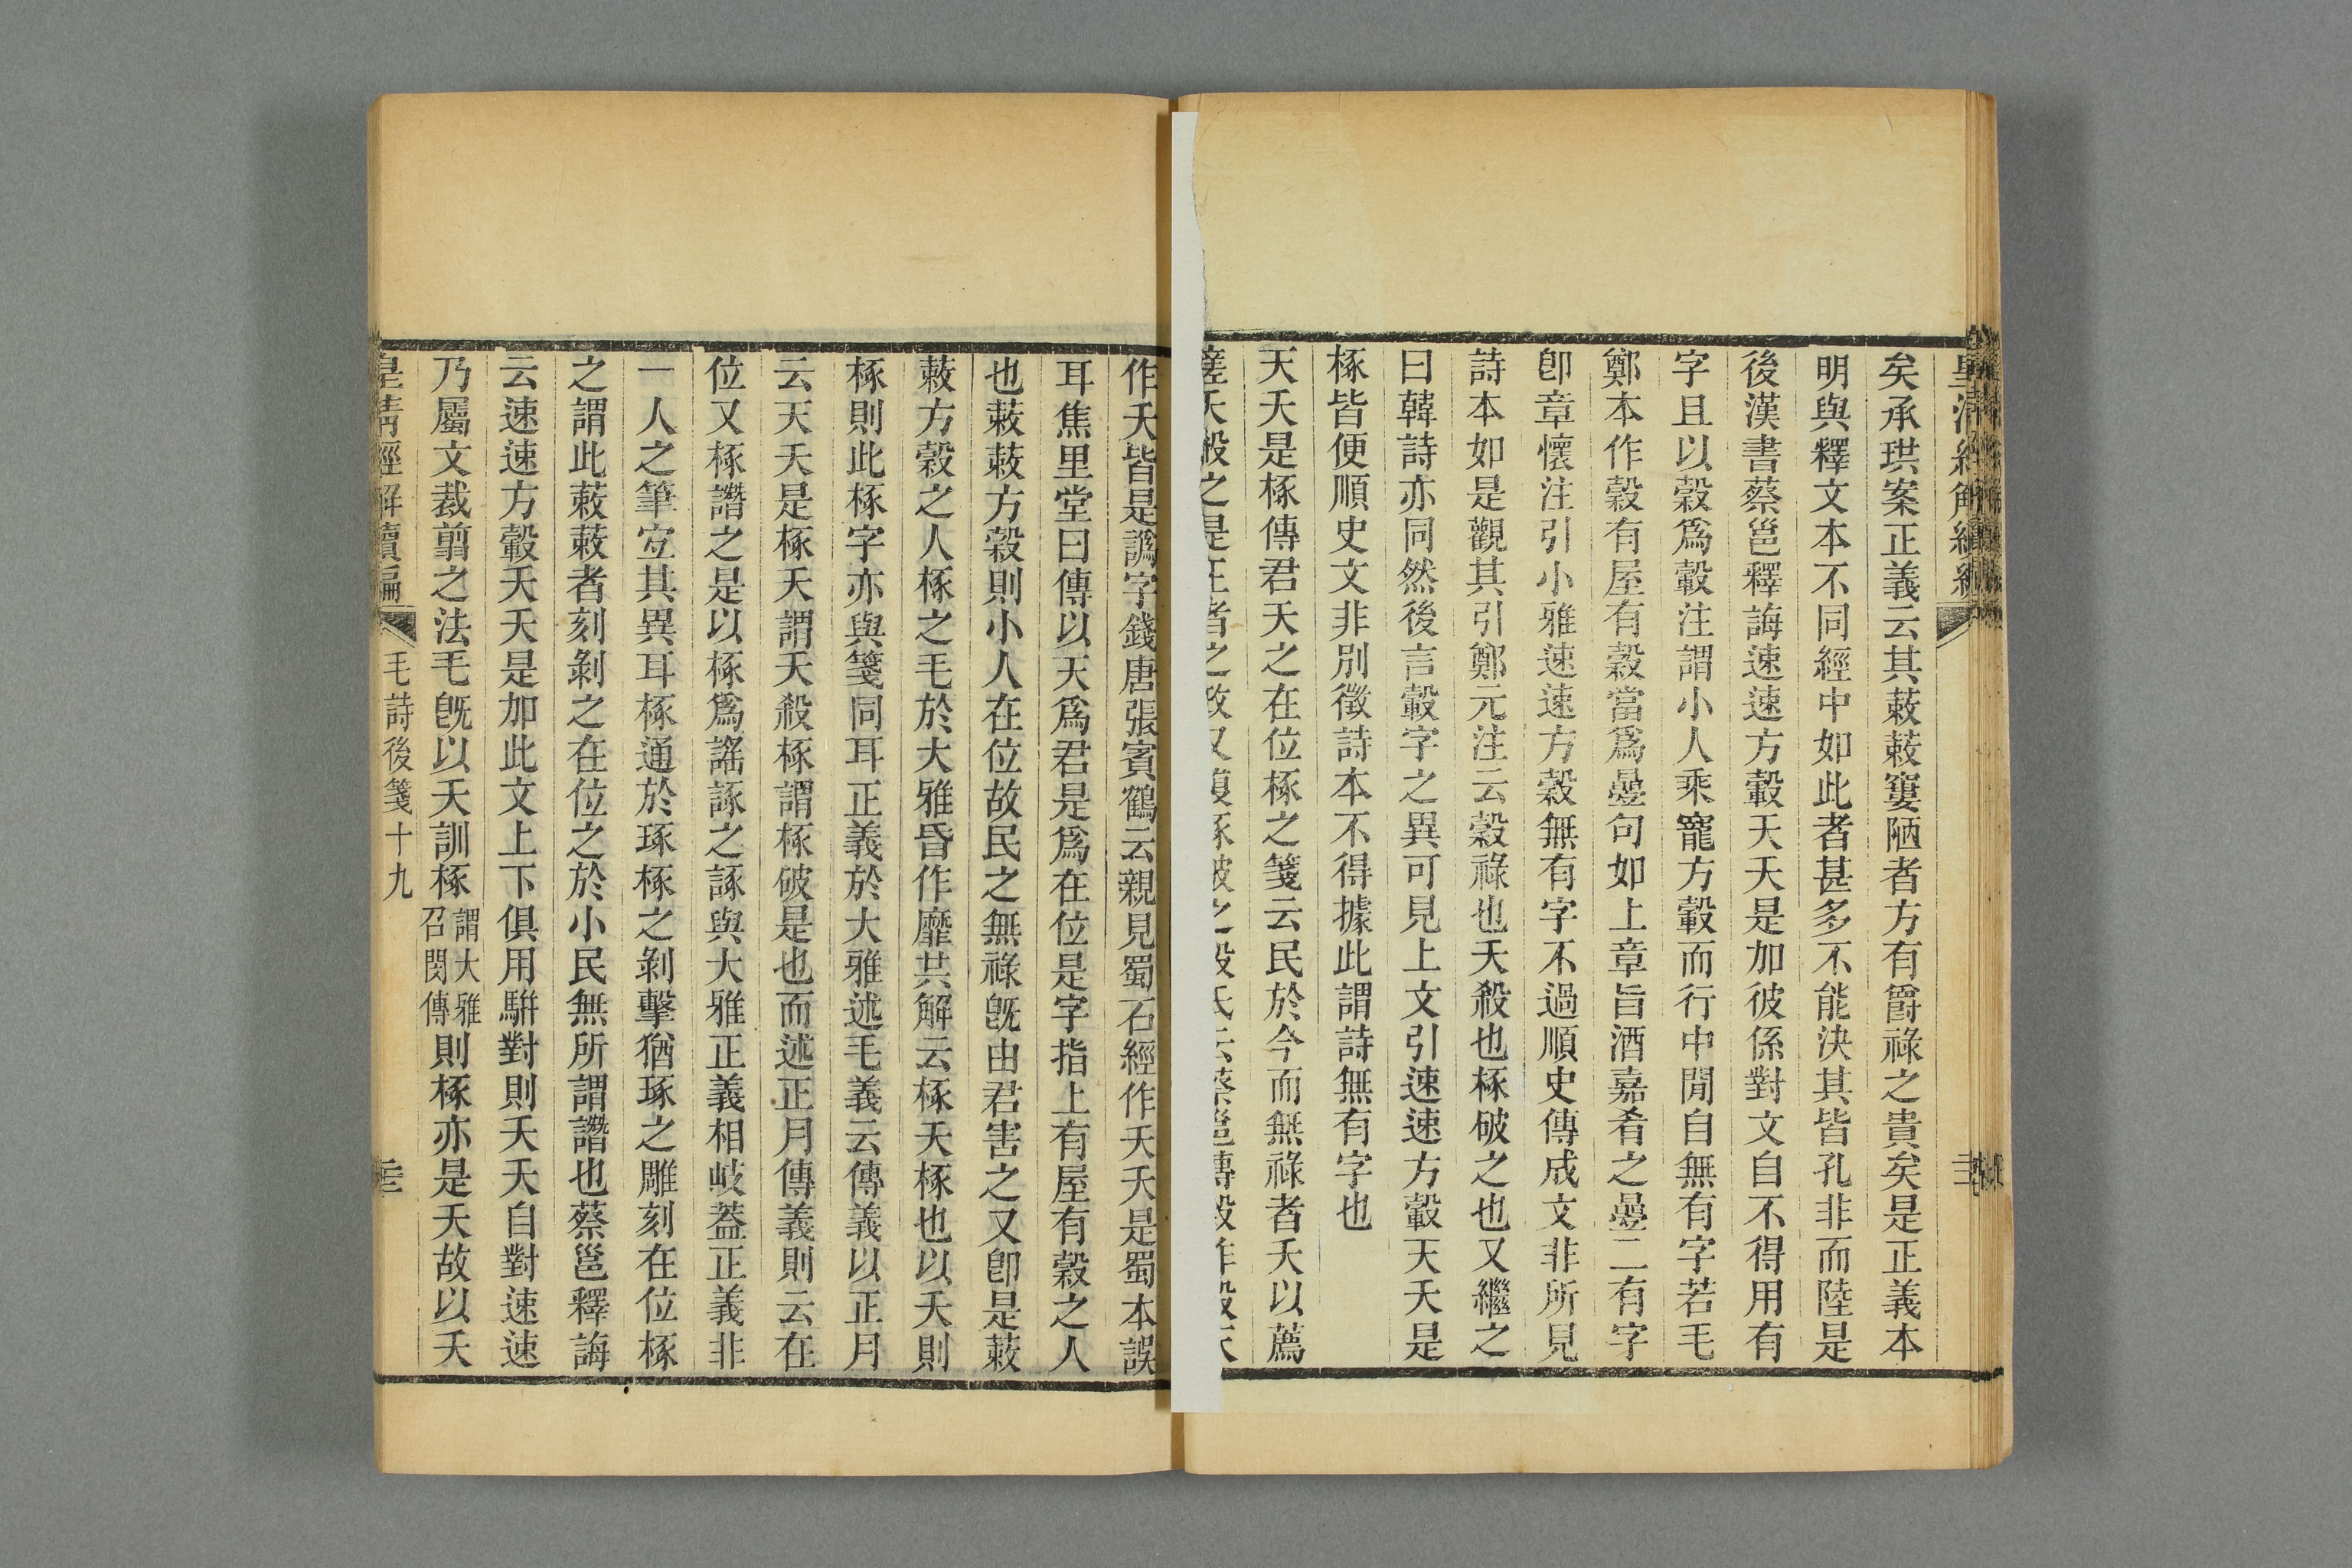 矣承珙案正義云其蔌蔌窶陋者方有爵祿之貴矣是正義本
明與釋文本不同經中如此者甚多不能決其皆孔非而陸是
後漢書蔡邕釋誨速速方轂夭夭是加彼係對文自不得用有
字且以穀爲轂注謂小人乘寵方轂而行中閒自無有字若毛
鄭本作穀有屋有穀當爲疉句如上章旨酒嘉肴之疉二有字
卽章懷注引小雅速速方穀無有字不過順史傳成文非所見
詩本如是觀其引鄭元注云穀祿也夭殺也椓破之也又繼之
曰韓詩亦同然後言轂字之異可見上文引速速方轂天夭是
椓皆便順史文非別徵詩本不得據此謂詩無有字也
天夭是椓傳君天之在位椓之箋云民於今而無祿者夭以薦
夭殺之是王者之政又復椓破之
作夭皆是譌字錢唐張賓鶴云親見蜀石經作夭夭是蜀本誤
耳焦里堂曰傳以天爲君是爲在位是字指上有屋有穀之人
也蔌蔌方穀則小人在位故民之無祿旣由君害之又卽是蔌
蔌方穀之人椓之毛於大雅昏作靡共解云椓夭椓也以夭則
椓則此椓字亦與箋同耳正義於大雅述毛義云傳義以正月
云天夭是椓夭謂夭殺椓謂椓破是也而述正月傳義則云在
位又椓譖之是以椓爲謠諑之諑與大雅正義相岐蓋正義非
一人之筆宐其異耳椓通於琢椓之剝擊猶琢之雕刻在位椓
之謂此蔌蔌者刻剝之在位之於小民無所謂譖也蔡邕釋誨
云速速方轂夭夭是加此文上下俱用騈對則夭夭自對速速
乃屬文裁翦之法毛旣以夭訓椓謂大雅召閔傳則椓亦是夭故以夭
皇淸經解續編 毛詩後箋十九